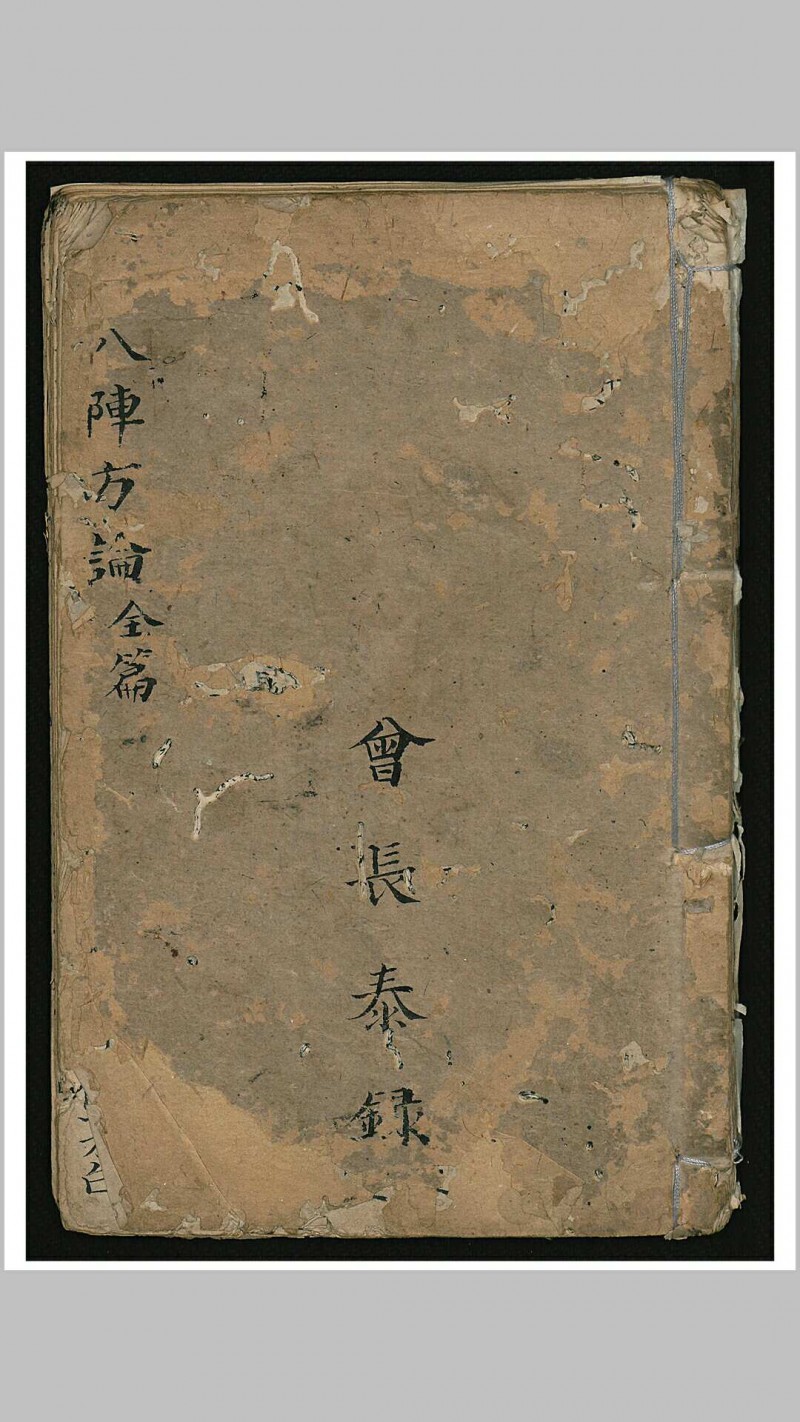 曾長泰録
八陣方論全篇